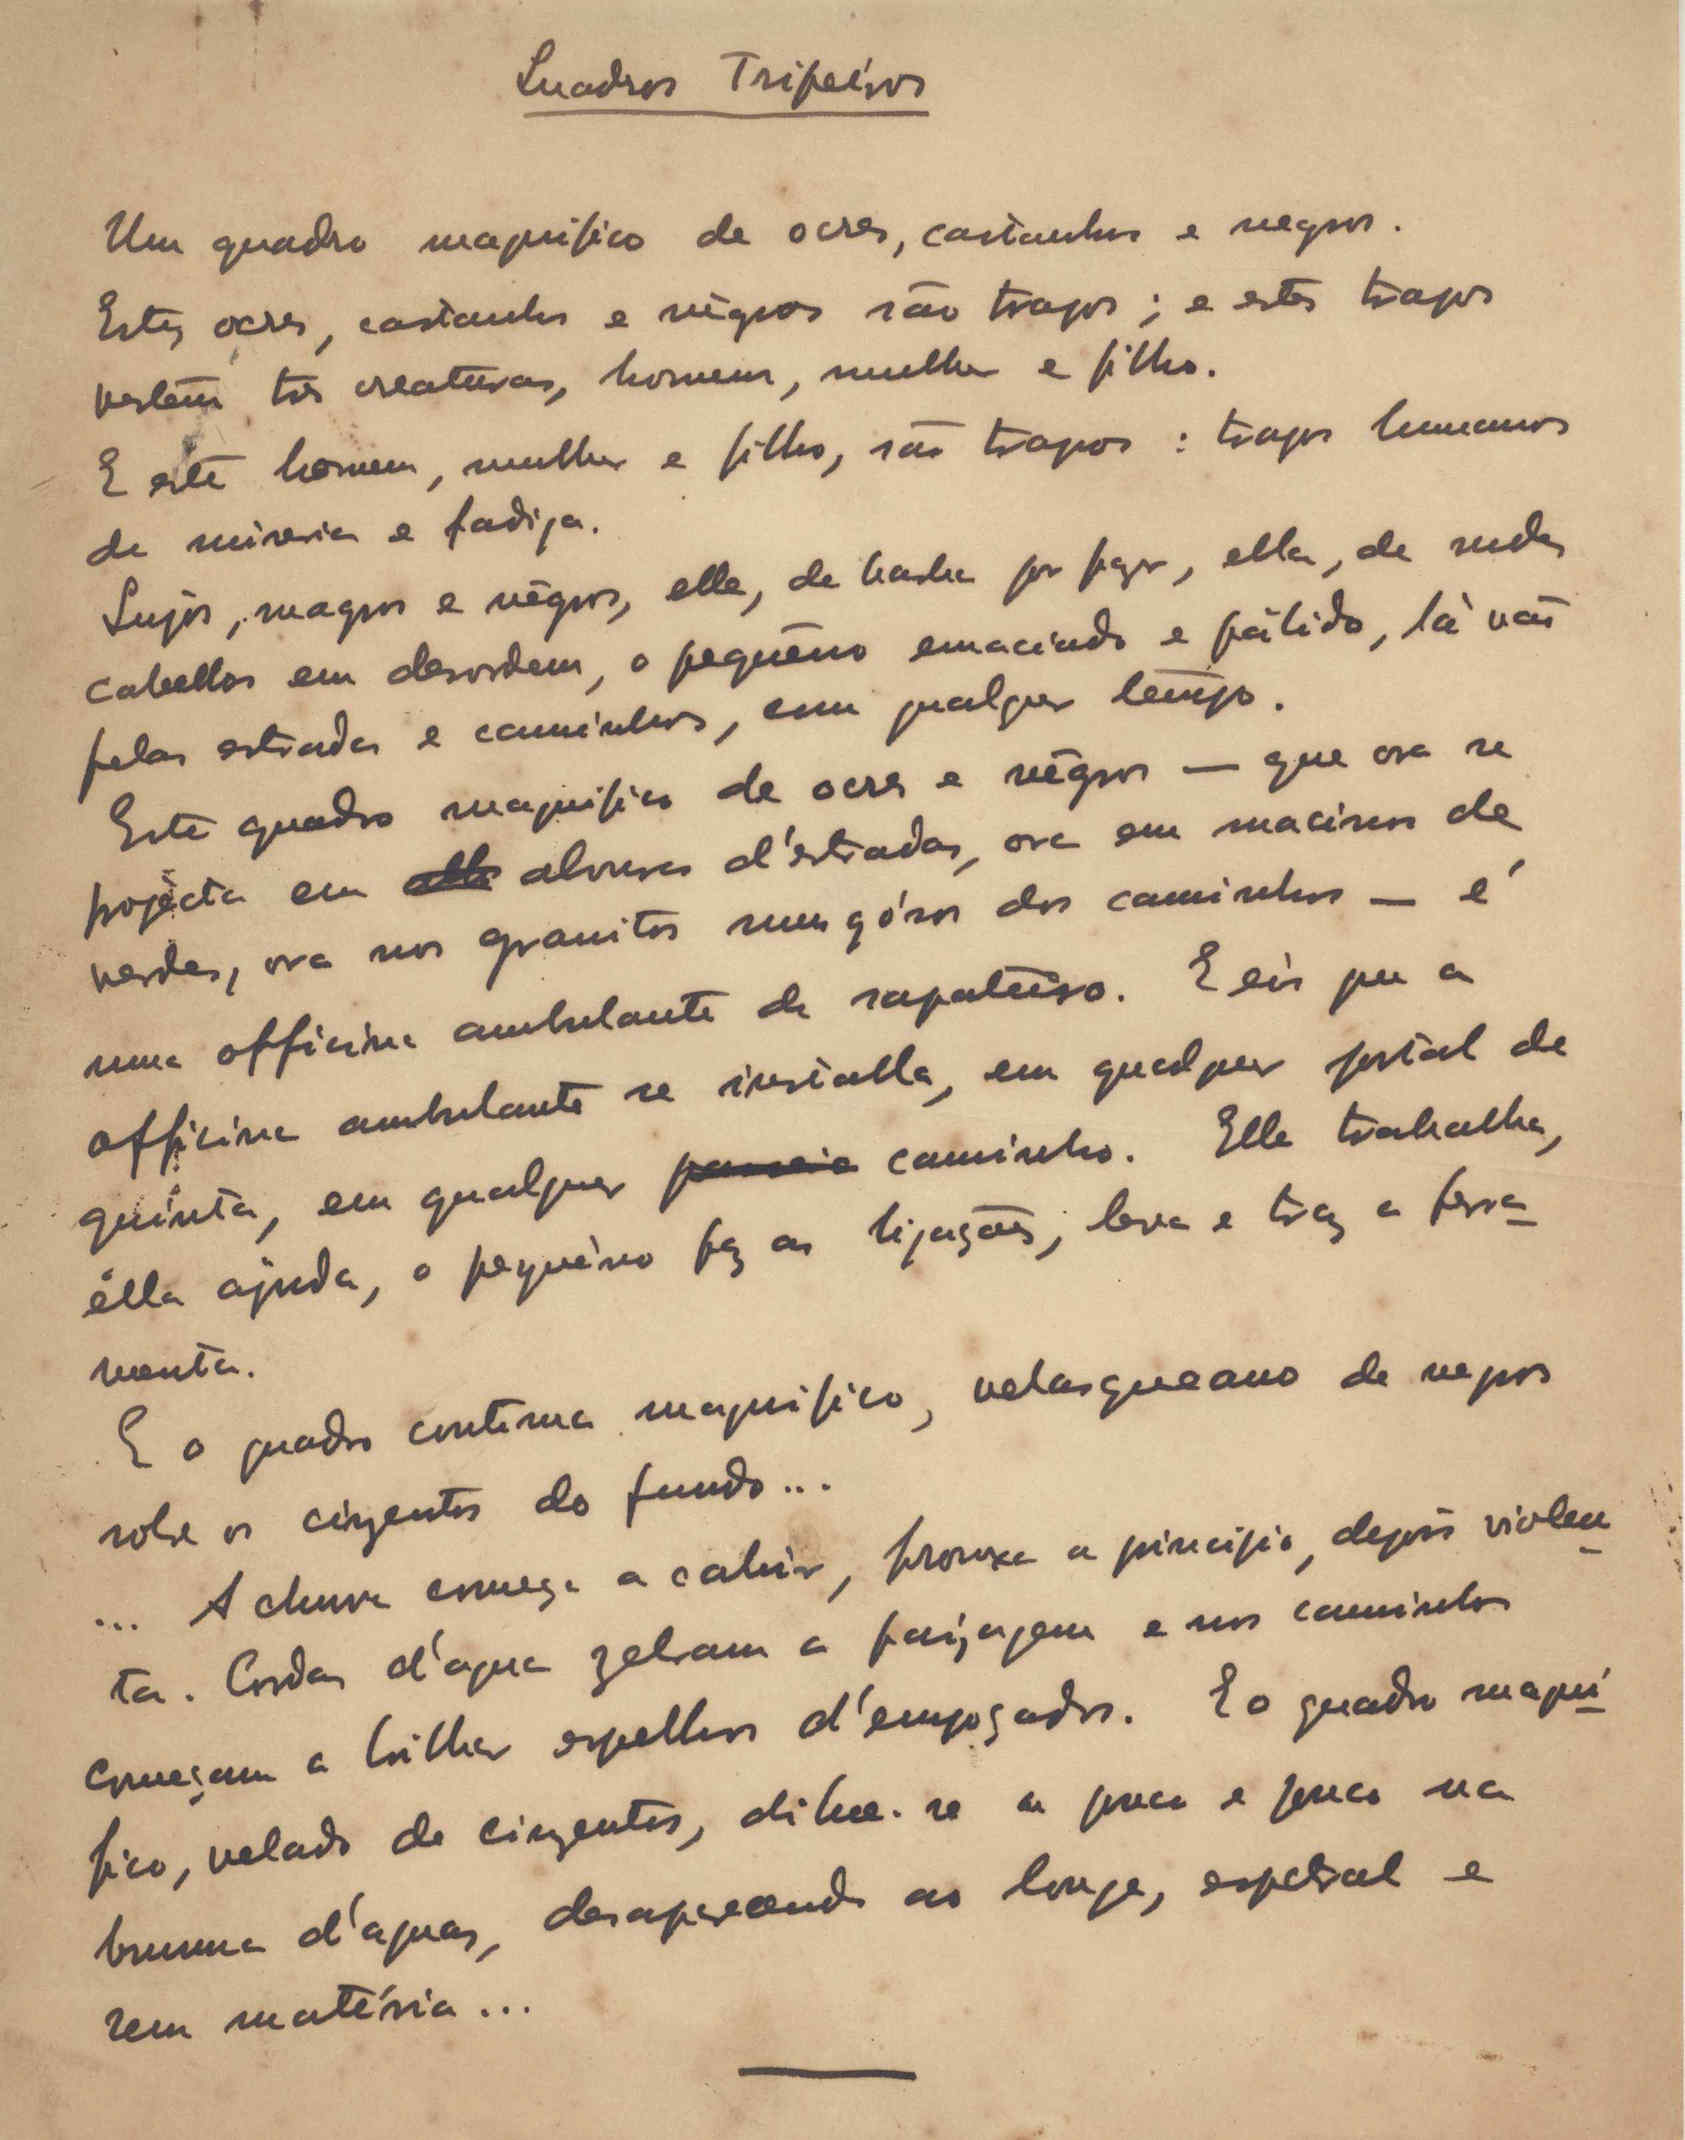 Quadros Tripeiros
Um quadro magnifico de ocres, castanhos e negros.
Estes ocres, castanhos e négros são trapos; e estes trapos
vestem tres creaturas, homem, mulher e filho.
E este homem, mulher e filho, são trapos: trapos humanos
de miseria e fadiga.
Sujos, magros e négros, elle, de barba por fazer, ella, de rudes
cabellos em desordem, o pequêno emaciado e pálido, lá vão
pelas estradas e caminhos, com qualquer tempo.
Este quadro magnifico de ocres e négros — que ora se
projécta em alvuras d'estradas, ora em macissos de
verdes, ora nos granitos musgósos dos caminhos — é
uma officina ambulante de sapateiro. E eis que a
officina ambulante se installa, em qualquer portal de
quinta, em qualquer caminho. Elle trabalha,
élla ajuda, o pequêno faz as ligações, leva e traz a ferra-
menta.
E o quadro continua magnifico, velasqueano de negros
sobre os cinzentos do fundo...
... A chuva começa a cahir, frouxa a principio, depois violen-
ta. Cordas d'agua zebram a paizagem e nos caminhos
começam a brilhar espelhos d'empoçados. E o quadro magni-
fico, velado de cinzentos, dilue-se a pouco e pouco na
bruma d'aguas, desaparecendo ao longe, espectral e
sem matéria...